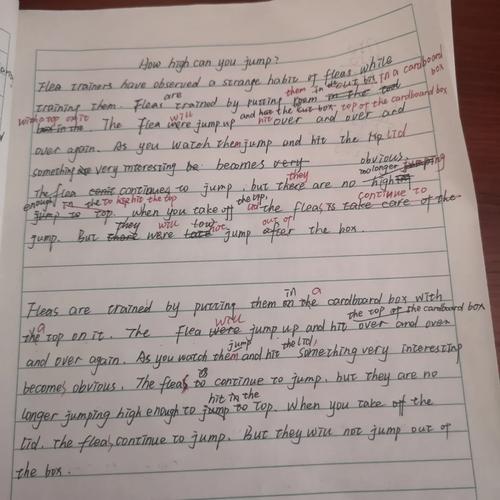 How high can you jump?
Flea trainers have observed a strange habit of fleas while
training them. Fleas are trained by putting them in a cardboard box
with a top on it. The flea will jump up and hit the top of the cardboard box over and over and
over again. As you watch them jump and hit the lid
something very interesting becomes obvious.
The flea continues to jump, but they are no longer jumping high
enough to hit the top. When you take off the lid the fleas continue to
jump. But they will not jump out of the box.
Fleas are trained by putting them in a cardboard box with
a the top on it. The flea will jump up and hit the top of the cardboard box over and over
and over again. As you watch them jump and hit the lid, Something very interesting
becomes obvious. The fleas continue to jump, but they are no
longer jumping high enough to hit the top. When you take off the
lid, the fleas continue to jump. But they will not jump out of
the box.